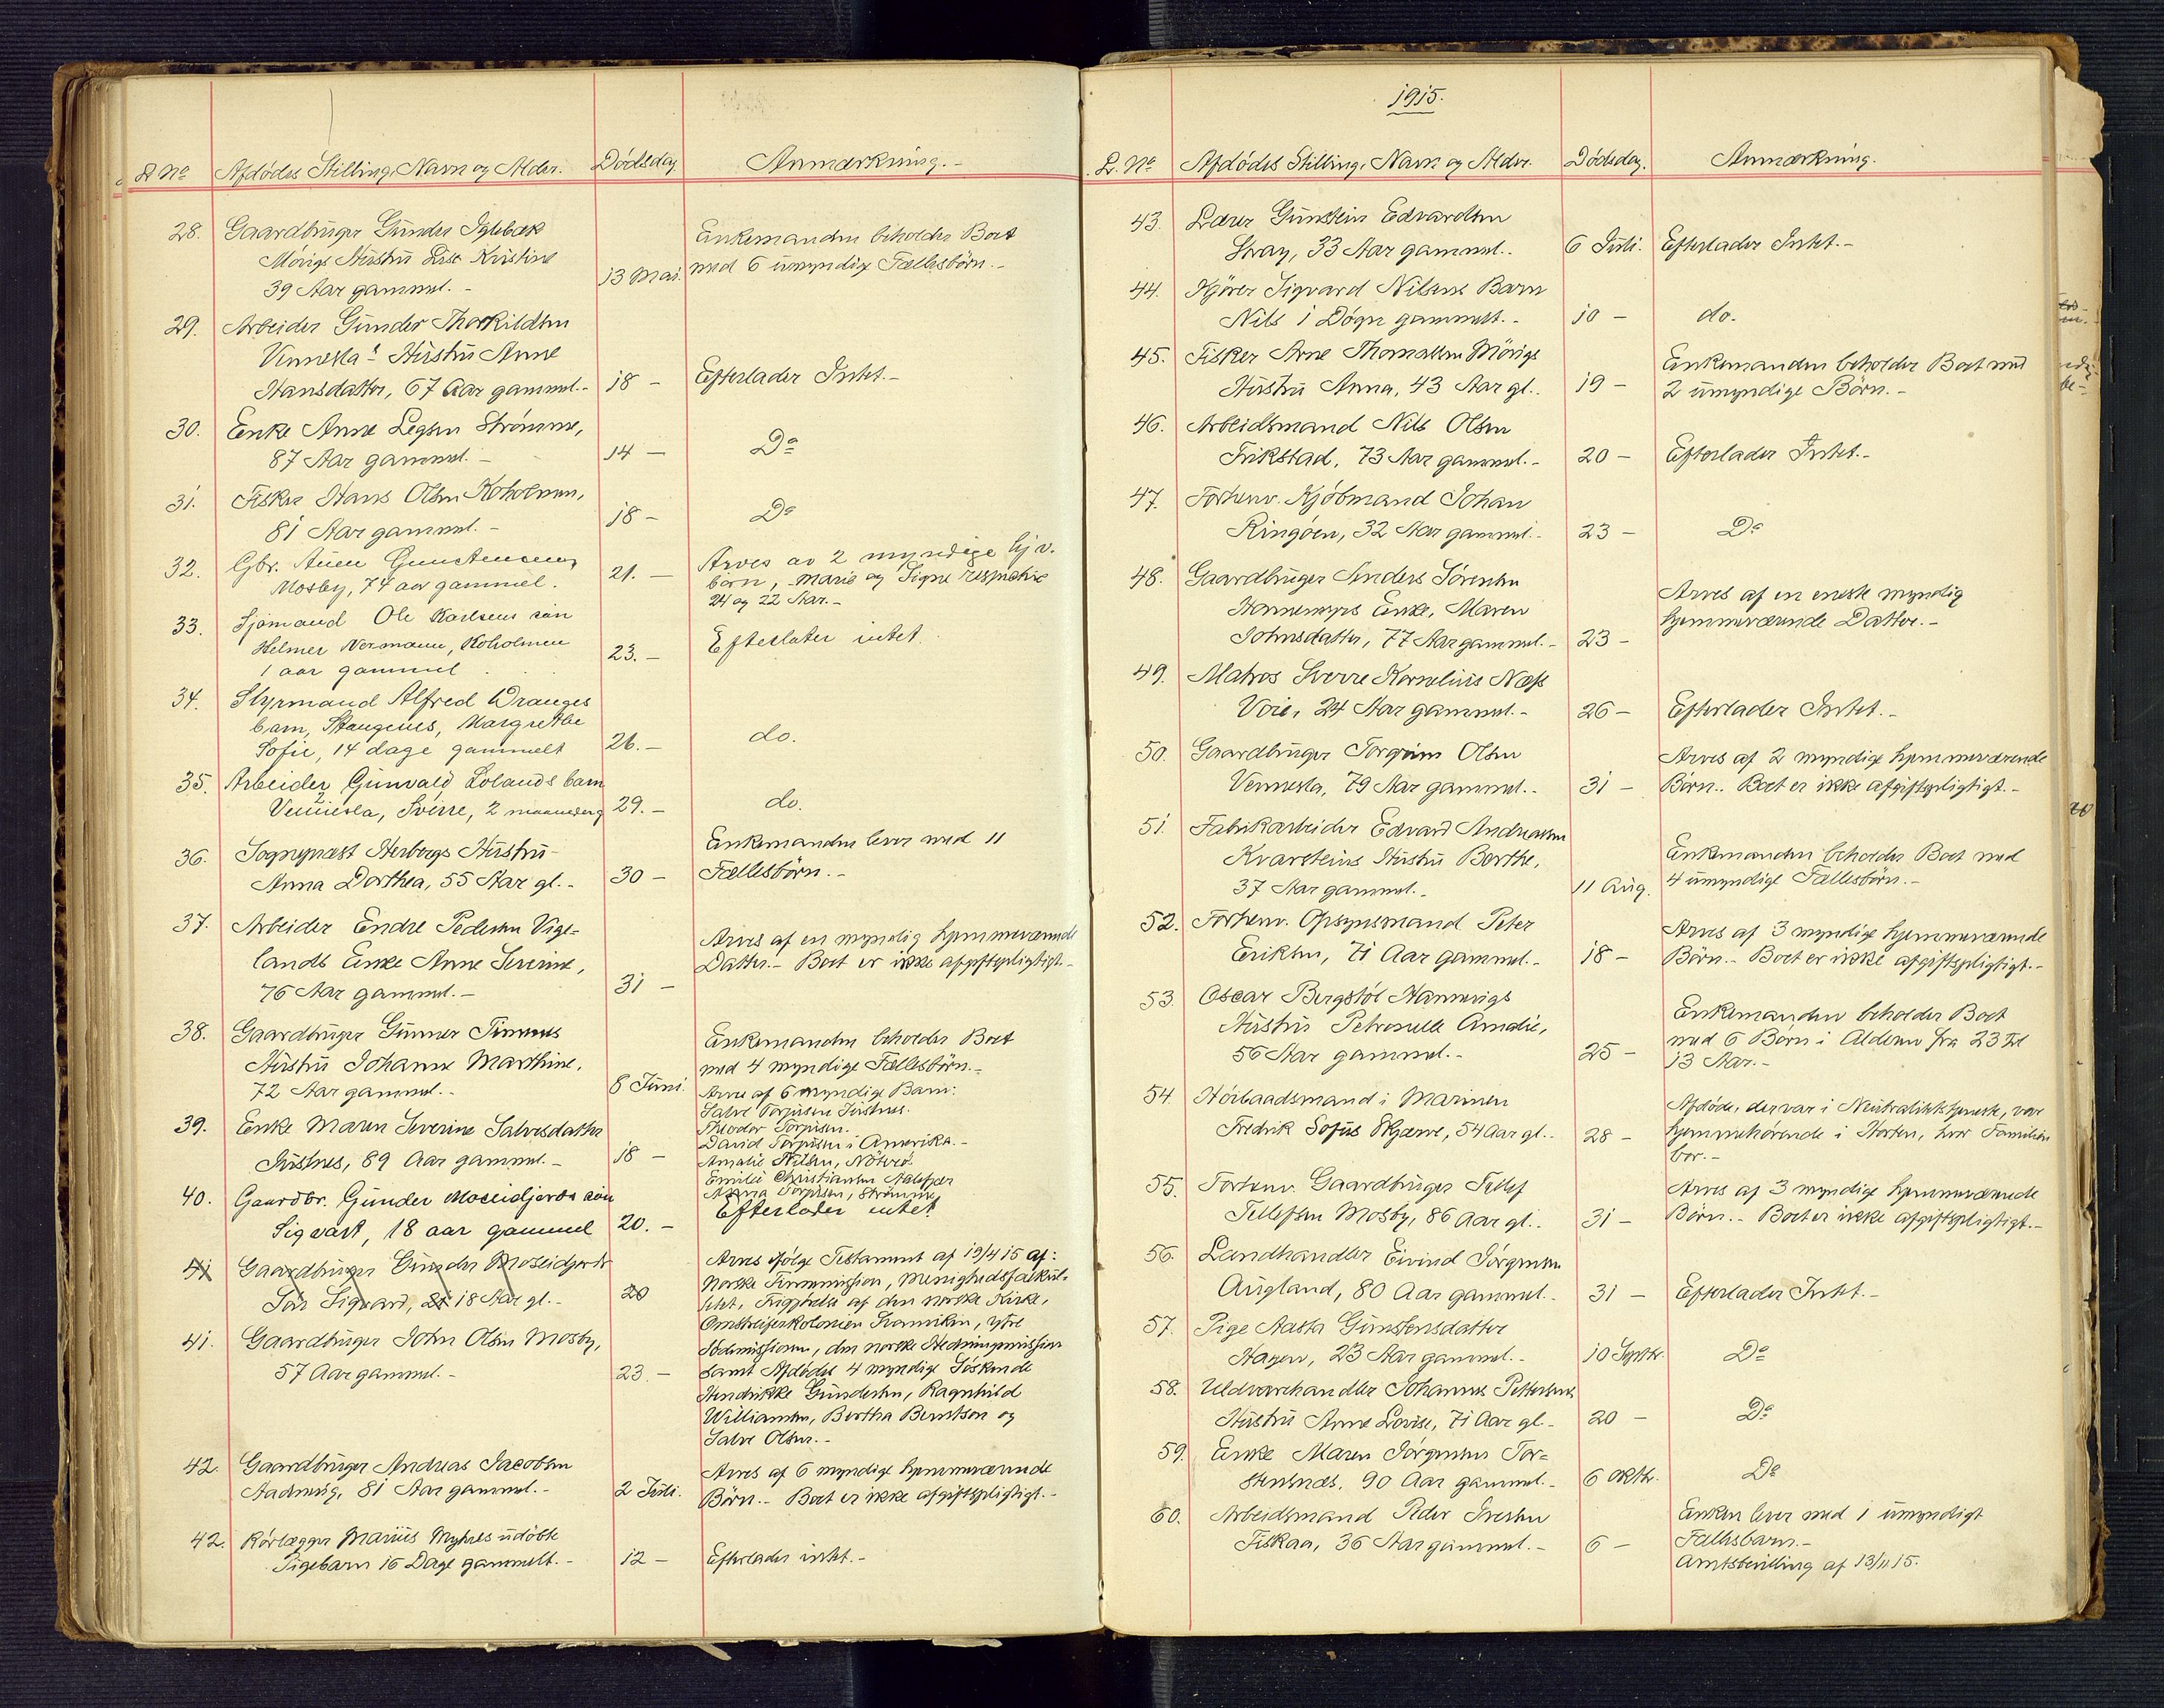 L. No Afdødes Stilling, Navn og Alder. Dødsdag. Anmærkning.-
28. Gaardbruger Gunder Iglebæk
Mörigs Hustru Lise Kristine
39 Aar gammel.- 13 Mai.
Enkemanden beholder Boet
med 6 umyndige Fællesbörn.-
29. Arbeider Gunder Thorkildsen
Vennesla's Hustru Anne
Hansdatter, 67 Aar gammel.- 18 - Efterlader Intet.-
30. Enke Anne Legsen Strømme,
87 Aar gammel.- 14 - Do
31. Fisker Hans Olsen Koholmen,
81 Aar gammel.- 18 - Do
32. Gbr. Aanen Gunstensen
Mosby, 74 aar gammel. 21.-
Arves av 2 myndige hjv.
børn, Marie og Signe respektive
24 og 22 Aar.-
33. Sjømand Ole Karlsens søn
Helmer Normann, Koholmen
1 aar gammel 23.- Efterlater intet.
34. Styrmand Alfred Dranges
barn, Stangenes, Margrethe
Sofie, 14 dage gammelt 26.- do.
35. Arbeider Gunvald Lolands barn
Vennesla, Sverre, 2 maaneder g 29.- do.
36. Sogneprest Herbergs Hustru
Anna Dorthea, 55 Aar gl.- 30 -
Enkemanden lever med 11
Fællesbörn.-
37. Arbeider Endre Pedersen Vige-
lands Enke Anne Severine,
76 Aar gammel.- 31 -
Arves af en myndig hjemmeværende
Datter.- Boet er ikke afgiftspligtigt.-
38. Gaardbruger Gunner Timenes
Hustru Johanne Marthine,
72 Aar gammel.- 8 Juni.
Enkemanden beholder Boet
med 4 myndige Fællesbörn.-
39. Enke Maren Severine Salvesdatter
Justnes, 89 Aar gammel.- 18 -
Arves af 6 myndige Barn:
Salve Torjusen Justnes.
Theodor Torjusen.
David Torjusen i Amerika.-
Amalie Nilsen, Nöterö.
Emilie Christiansen Aalefjær
Maria Torjusen, Strømme
40. Gaardbr. Gunder Moseidjords søn
Sigvart, 18 aar gammel 20.- Efterlader intet
41 Gaardbruger Gunder Moseidjords
Søn Sigvard, 21 18 Aar gl.- 20
41. Gaardbruger John Olsen Mosby,
57 Aar gammel.- 23.-
Arves ifølge Testament af 19/4 15 af:
Norske Finnemission, Menighedsfakul-
tetet, Frigjørelse af den norske Kirke,
Omstreiferkolonien Svanviken, ytre
Sødmissionen, den norske Hedningemission
samt Afdødes 4 myndige Søskende
Hendrikke Gundersen, Ragnhild
Williamsen, Bertha Berntson og
Salve Olsen.-
42. Gaardbruger Andreas Jacobsen
Aadnevig, 81 Aar gammel.- 2 Juli.
Arves af 6 myndige hjemmeværende
Börn.- Boet er ikke afgiftspligtigt.-
42. Rörlægger Marius Myhres udöbte
Pigebarn 16 Dage gammelt.- 12 - Efterlader intet.-
1915.
L. No Afdødes Stilling, Navn og Alder. Dødsdag. Anmærkning.
43. Lærer Gunstein Edvardsen
Stray, 33 Aar gammel.- 6 Juli. Efterlader Intet.-
44. Kjörer Sigvard Nilsens Barn
Nils 1 Døgn gammelt.- 10 - do.
45. Fisker Arne Thomassen Mörigs
Hustru Anna, 43 Aar gl.- 19 -
Enkemanden beholder Boet med
2 umyndige Börn.-
46. Arbeidsmand Nils Olsen
Frikstad, 73 Aar gammel.- 20 - Efterlader Intet.-
47. Forhenv. Kjöbmand Johan
Ringöen, 32 Aar gammel.- 23 - Do
48. Gaardbruger Anders Sörensen
Hannemyrs Enke, Maren
Johnsdatter, 77 Aar gammel.- 23 -
Arves af en eneste myndig
hjemmeværende Datter.-
49. Matros Sverre Kornelius Næss
Voie, 24 Aar gammel.- 26 - Efterlader Intet.-
50. Gaardbruger Torgrim Olsen
Vennesla, 79 Aar gammel.- 31 -
Arves af 2 myndige hjemmeværende
Börn.- Boet er ikke afgiftspligtigt.-
51. Fabrikarbeider Edvard Andreassen
Kvarsteins Hustru Berthe,
37 Aar gammel.- 11 Aug.
Enkemanden beholder Boet med
4 umyndige Fællesbörn.-
52. Forhenv. Opsynsmand Peter
Eriksen, 71 Aar gammel.- 18 -
Arves af 3 myndige hjemmeværende
Börn.- Boet er ikke afgiftspligtigt.-
53. Oscar Bergstöl Hannevigs
Hustru Petronelle Amalie,
56 Aar gammel.- 25 -
Enkemanden beholder Boet
med 6 Börn i Alderen fra 23 til
13 Aar.-
54 Hörbaadsmand i Marinen
Fredrik Sofus Skjærve, 54 Aar gl.- 28 -
Afdøde, der var i Neutralitetstjeneste, var
hjemmehörende i Horten, hvor Familien
bor.-
55. Forhenv. Gaardbruger Tellef
Tellefsen Mosby, 86 Aar gl.- 31 -
Arves af 3 myndige hjemmeværende
Börn.- Boet er ikke afgiftspligtigt.-
56. Landhandler Eivind Jörgensen
Augland, 80 Aar gammel.- 31 - Efterlader Intet.-
57. Pige Aasta Gunstensdatter
Hagen, 23 Aar gammel.- 10 Septbr. Do
58. Uldvarehandler Johannes Pettersens
Hustru Anne Lovise, 71 Aar gl.- 20 - Do
59. Enke Maren Jörgensen Tor-
stensnæs, 90 Aar gammel.- 6 Oktbr. Do
60. Arbeidsmand Peder Iversen
Fiskaa, 36 Aar gammel.- 6 -
Enken lever med 1 umyndigt
Fællesbarn.-
Amtsbevilling af 13/11 15.